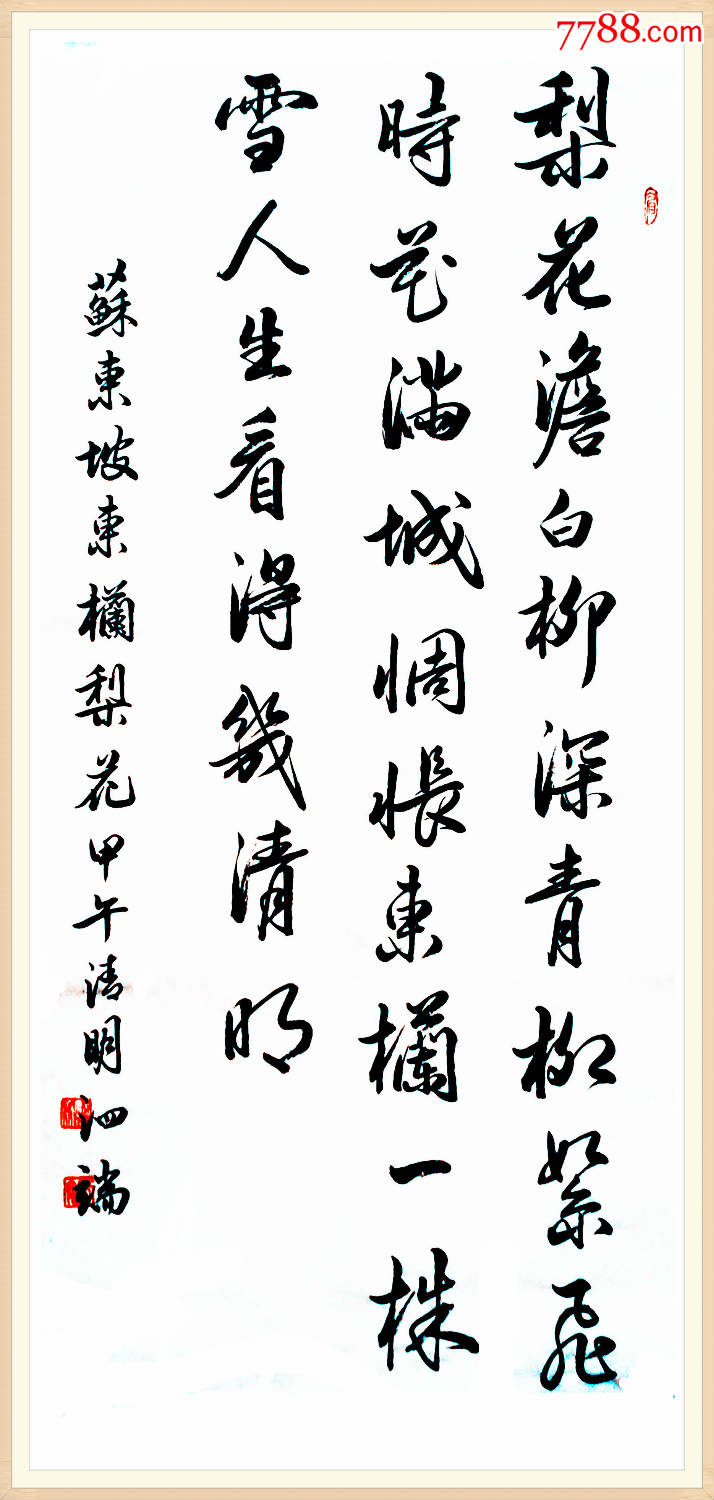 7788.com
梨花澹白柳深青柳絮飛
時花滿城惆悵東欄一株
雪人生看得幾清明
蘇東坡東欄梨花甲午清明泗端